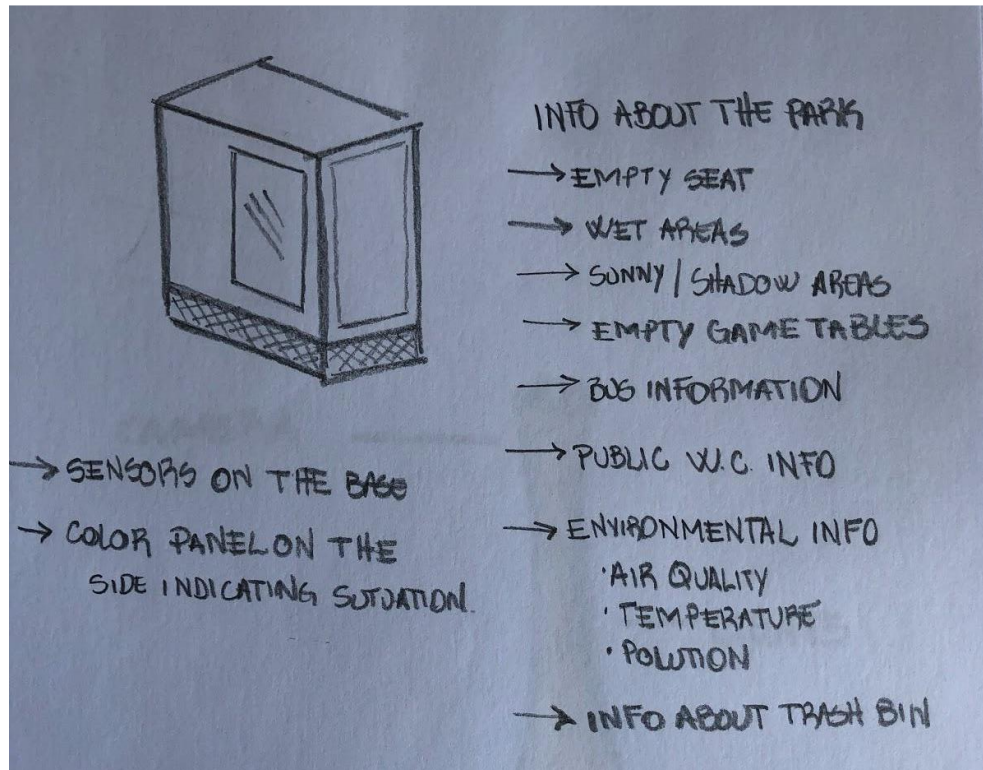 INFO ABOUT THE PARK
→ EMPTY SEAT
→ WET AREAS
→ SUNNY / SHADOW AREAS
→ EMPTY GAME TABLES
→ BUS INFORMATION
→ PUBLIC W.C. INFO
→ ENVIRONMENTAL INFO
· AIR QUALITY
· TEMPERATURE
· POLUTION
→ INFO ABOUT TRASH BIN
→ SENSORS ON THE BASE
→ COLOR PANEL ON THE
SIDE INDICATING SUTUATION.